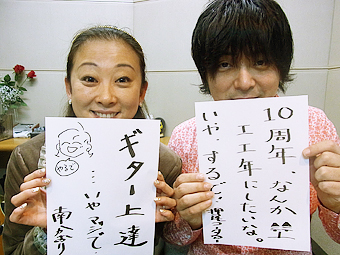 ギター上達
…いやマジで…
南かおり
10周年、なんか
エエ年にしたいな。
いや、するで。